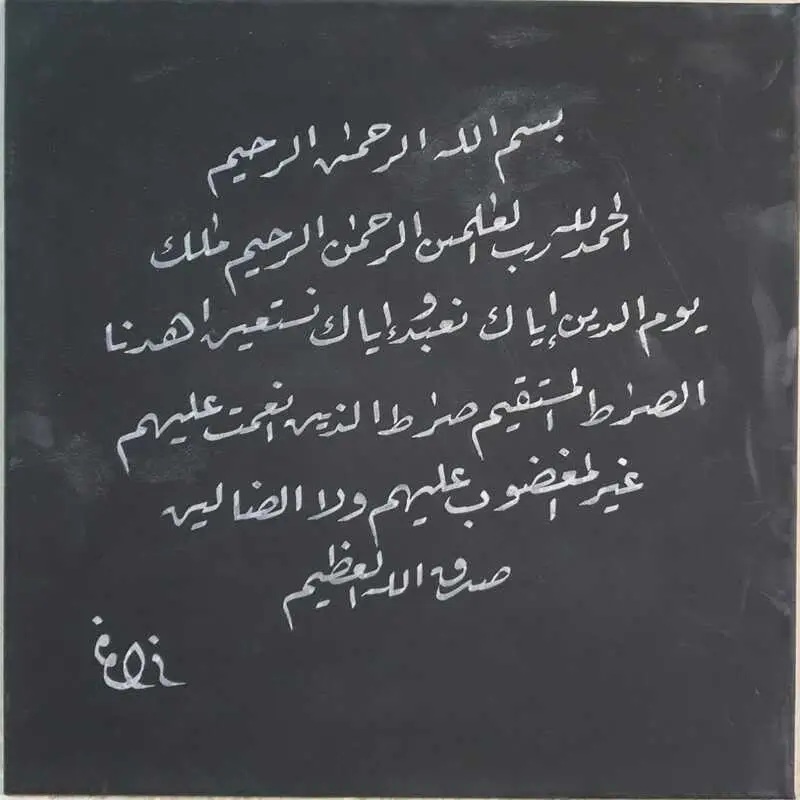 بسم الله الرحمٰن الرحيم
الحمد لله رب العٰلمين الرحمٰن الرحيم مٰلك
يوم الدين إياك نعبد وإياك نستعين اهدنا
الصرٰط المستقيم صرٰط الذين انعمت عليهم
غير المغضوب عليهم ولا الضالين
صدق الله العظيم